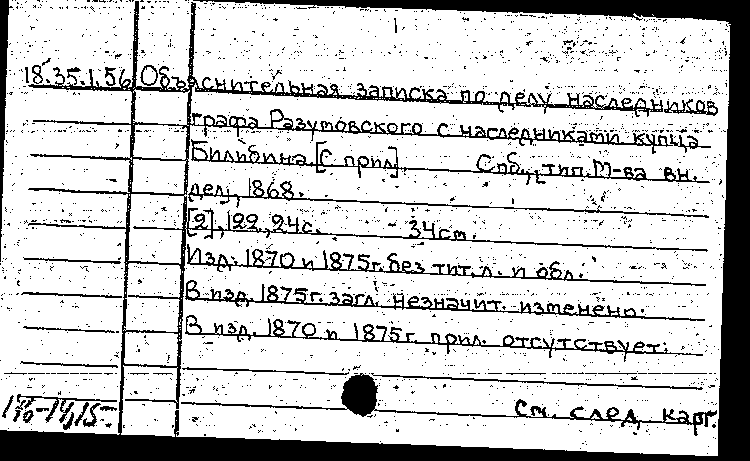 18.35.1.56 Объяснительная записка по делу наследников
графа Разумовского с наследниками купца
Билибина [С прил]. Спб., тип. М-ва вн.
дел, 1868.
[2], 122, 24с. 34см.
Изд. 1870 и 1875г. без тит. л. и обл.
В изд. 1875г. загл. незначит. изменено.
В изд. 1870 и 1875г. прил. отсутствует.
См. след. карт.